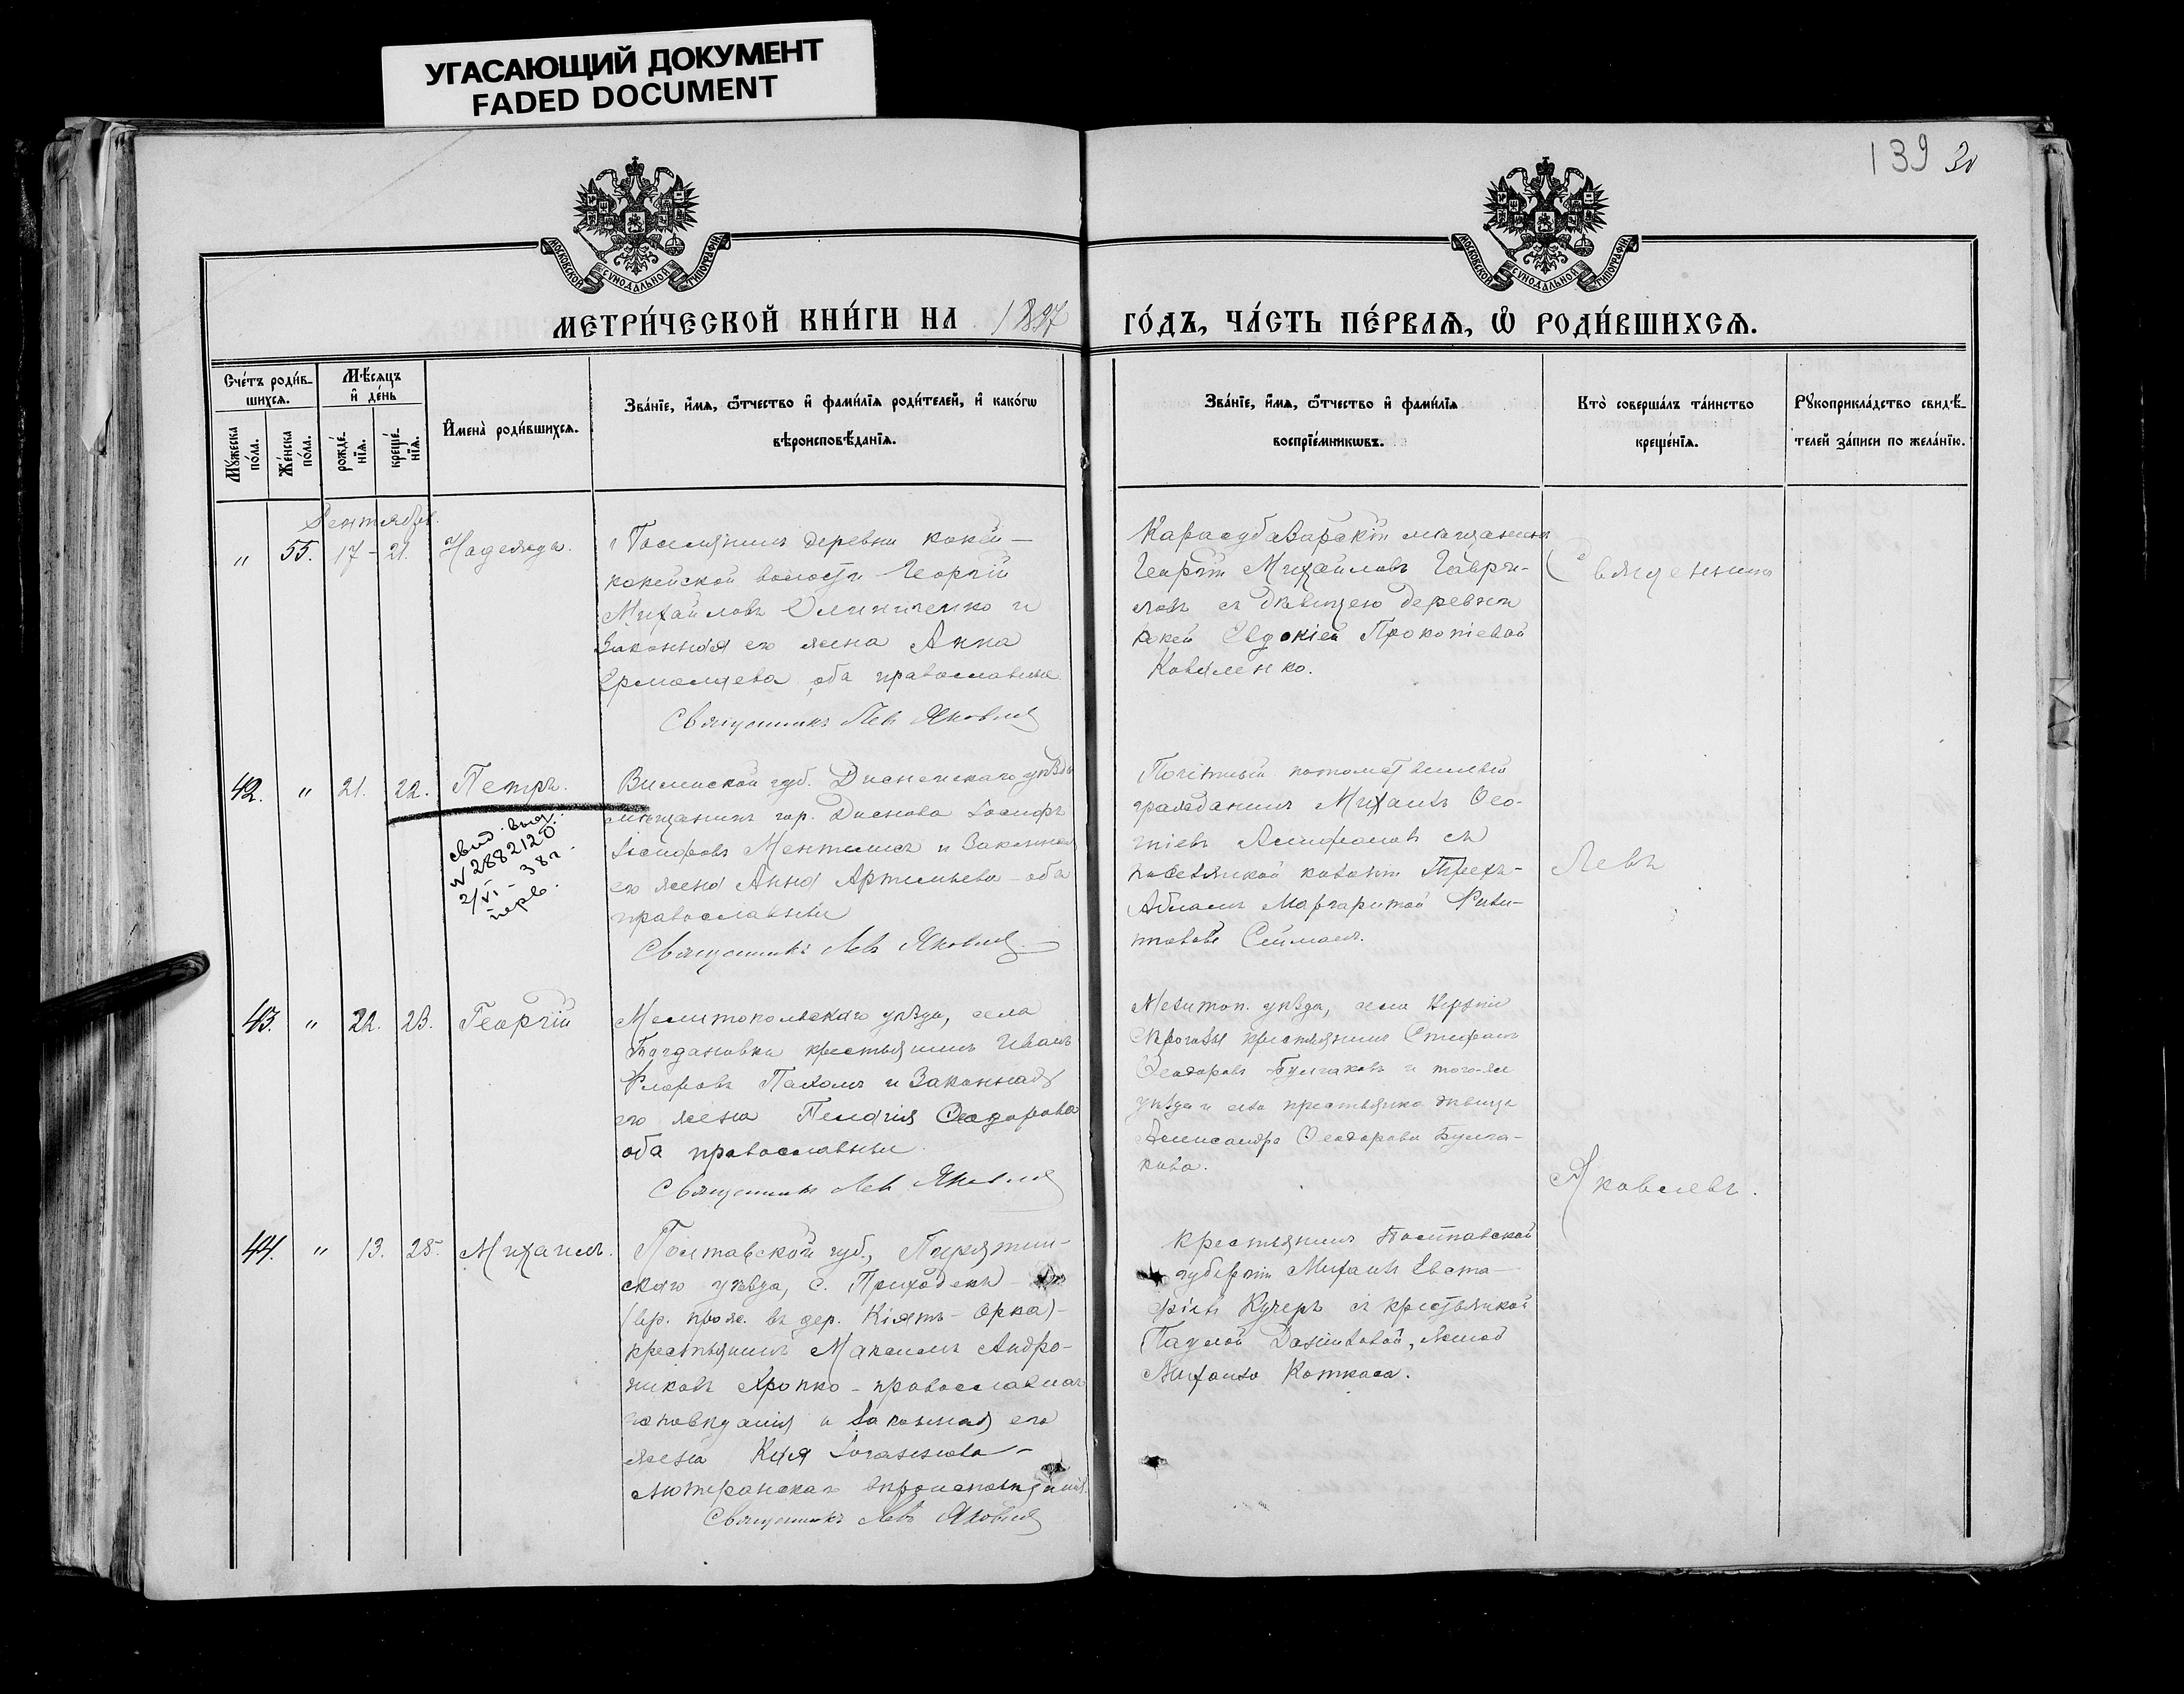 УГАСАЮЩИЙ ДОКУМЕНТ
FADED DOCUMENT
139 20
МОСКОВСКОЙ СѴНОДАЛЬНОЙ ТИПОГРАФІИ
МОСКОВСКОЙ СѴНОДАЛЬНОЙ ТИПОГРАФІИ
МЕТРИ́ЧЕСКОЙ КНИ́ГИ НА 1897
ГО́ДЪ, ЧА́СТЬ ПЕ́РВАѦ, Ѡ҆ РОДИ́ВШИХСѦ.
Сче́тъ роди́в-
шихсѧ.
Мꙋ́жеска по́ла.
Же́нска по́ла.
Мѣ́сѧцъ
и҆ де́нь
рожде́-
нїѧ.
креще́-
нїѧ.
И҆мена̀ роди́вшихсѧ.
Зва́нїе, и҆́мѧ, ѻ҆́тчество и҆ фами́лїѧ роди́телей, и҆ како́гѡ
вѣроисповѣ́данїѧ.
Зва́нїе, и҆́мѧ, ѻ҆́тчество и҆ фами́лїѧ
воспрїе́мникѡвъ.
Кто̀ соверша́лъ та́инство
креще́нїѧ.
Рꙋкоприкла́дство свидѣ́-
телей за́писи по жела́нїю.
Сентябрь.
" 55. 17 - 21. Надежда.
Поселянинъ деревни Кокей-
кокейской волости Георгій
Михайловъ Олиниченко и
законная его жена Анна
Ермолаева, оба православные
Священникъ Левъ Яковлев
Карасубазарскій мещанинъ
Георгій Михайловъ Гаври-
ловъ съ дѣвицею деревни
Кокей Евдокіей Прокопіевой
Коваленко.
Священникъ
42. " 21. 22. Петръ.
свид. выд.
N 288212
2/VI - 38 г.
перв.
Виленской губ. Дисненскаго уѣзда
мещанинъ гор. Диснова Іосифъ
Іосифовъ и законная
его жена Анна Артемьева - оба
православные
Священникъ Левъ Яковлев
Почетный потомственный
гражданинъ Михаилъ
съ
поселянкой
Маргаритой
Левъ
43. " 22. 23. Георгій
Мелитопольскаго уѣзда, села
Богдановки крестьянинъ Иванъ
Флоровъ Пахомъ и законная
его жена Пелагія Ѳеодорова
оба православные
Священникъ Левъ Яковлев
Мелитоп. уѣзда, села
крестьянинъ Стефанъ
Ѳеодоровъ Булгаковъ и того-же
уѣзда и села крестьянка дѣвица
Александра Ѳеодорова Булга-
кова.
Яковлевъ.
44. " 13. 28. Михаилъ.
Полтавской губ., Пирятин-
скаго уѣзда, с. Приходекъ -
(вр. прож. въ дер. Кіятъ-Орка)-
крестьянинъ Максимъ Андро-
никовъ Хропко - православнаго
исповѣданія и законная его
жена
лютеранскаго вѣроисповѣданія.
Священникъ Левъ Яковлев
Крестьянинъ Полтавской
губерніи Михаилъ Евста-
фіевъ Кучеръ съ крестьянкой
женой